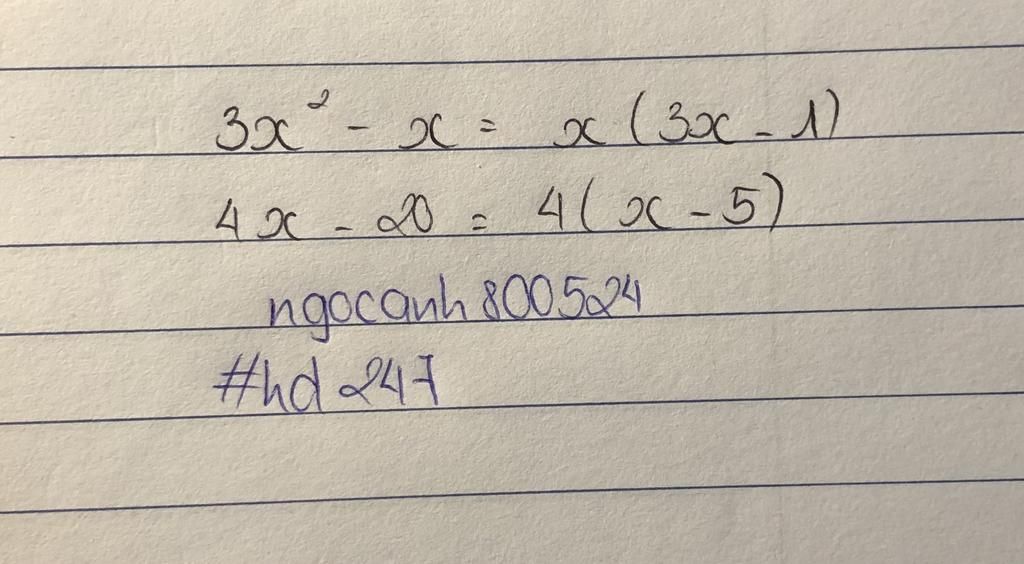 3x² - x = x (3x - 1)
4x - 20 = 4( x - 5)
ngocanh800524
#hd 247